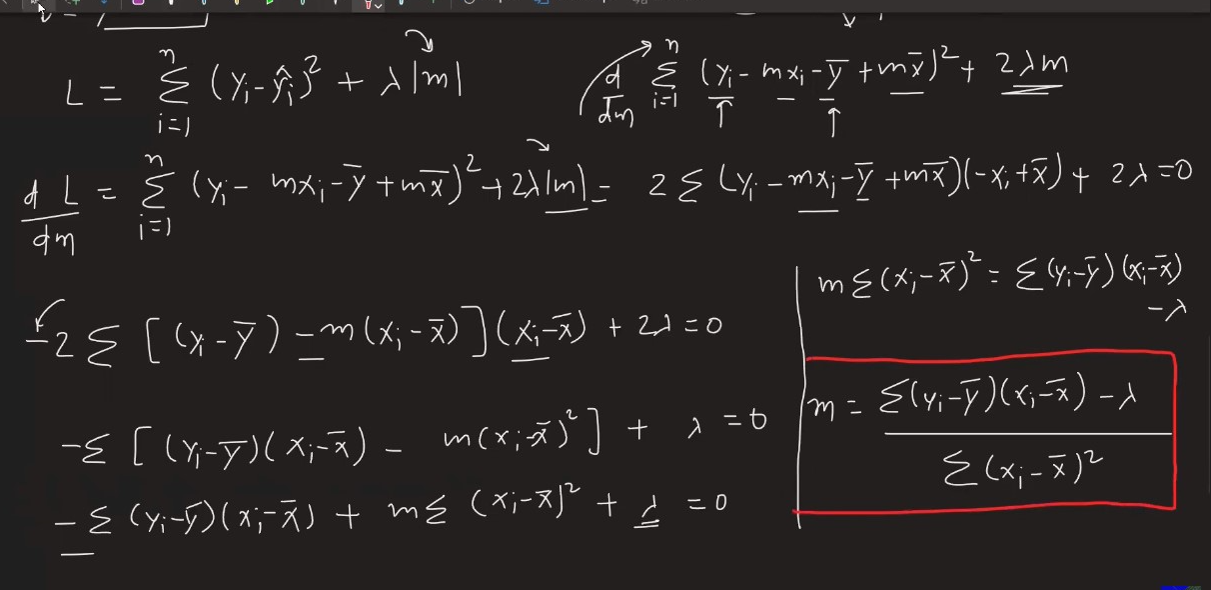 L = Σ_{i=1}^{n} (yᵢ - ŷᵢ)² + λ|m|
d/dm Σ_{i=1}^{n} (yᵢ - mxᵢ - ȳ + mx̄)² + 2λm
dL/dm = Σ_{i=1}^{n} (yᵢ - mxᵢ - ȳ + mx̄)² + 2λ|m| = 2Σ (yᵢ - mxᵢ - ȳ + mx̄)(-xᵢ + x̄) + 2λ = 0
-2Σ [(yᵢ - ȳ) - m(xᵢ - x̄)](xᵢ - x̄) + 2λ = 0
-Σ [(yᵢ - ȳ)(xᵢ - x̄) - m(xᵢ - x̄)²] + λ = 0
-Σ (yᵢ - ȳ)(xᵢ - x̄) + mΣ (xᵢ - x̄)² + λ = 0
mΣ(xᵢ - x̄)² = Σ(yᵢ - ȳ)(xᵢ - x̄)
-λ
m = Σ(yᵢ - ȳ)(xᵢ - x̄) - λ
Σ(xᵢ - x̄)²